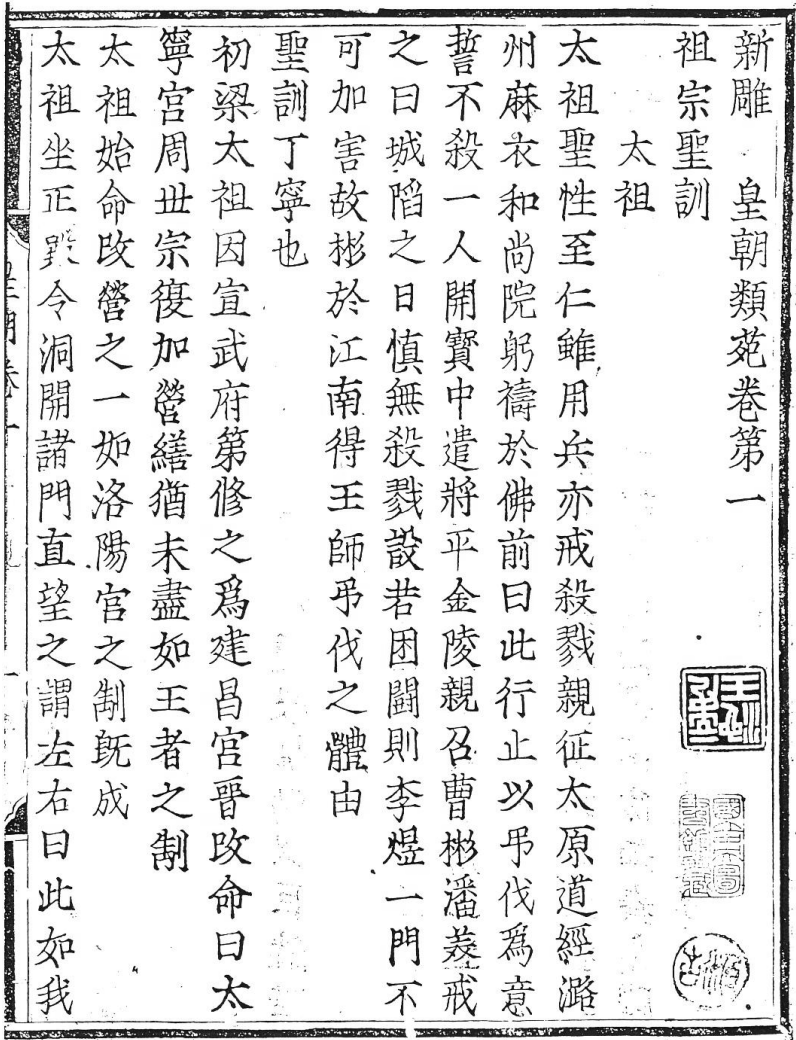 新雕　皇朝類苑卷第一
祖宗聖訓
太祖
太祖聖性至仁雖用兵亦戒殺戮親征太原道經潞
州麻衣和尚院躬禱於佛前曰此行止以弔伐爲意
誓不殺一人開寶中遣將平金陵親召曹彬潘美戒
之曰城陷之日慎無殺戮設若困鬪則李煜一門不
可加害故彬於江南得王師弔伐之體由
聖訓丁寧也
初梁太祖因宣武府第修之爲建昌宮晉改命曰太
寧宮周世宗復加營繕猶未盡如王者之制
太祖始命改營之一如洛陽宮之制旣成
太祖坐正殿令洞開諸門直望之謂左右曰此如我